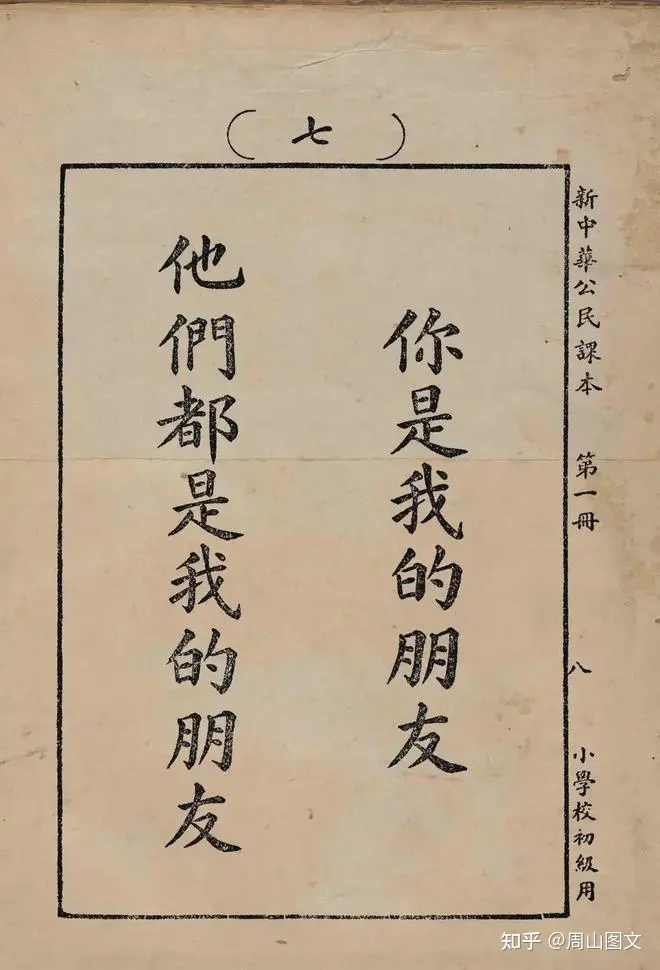 （七）
你是我的朋友
他們都是我的朋友
新中華公民課本 第一冊 八 小學校初級用
知乎 @周山图文